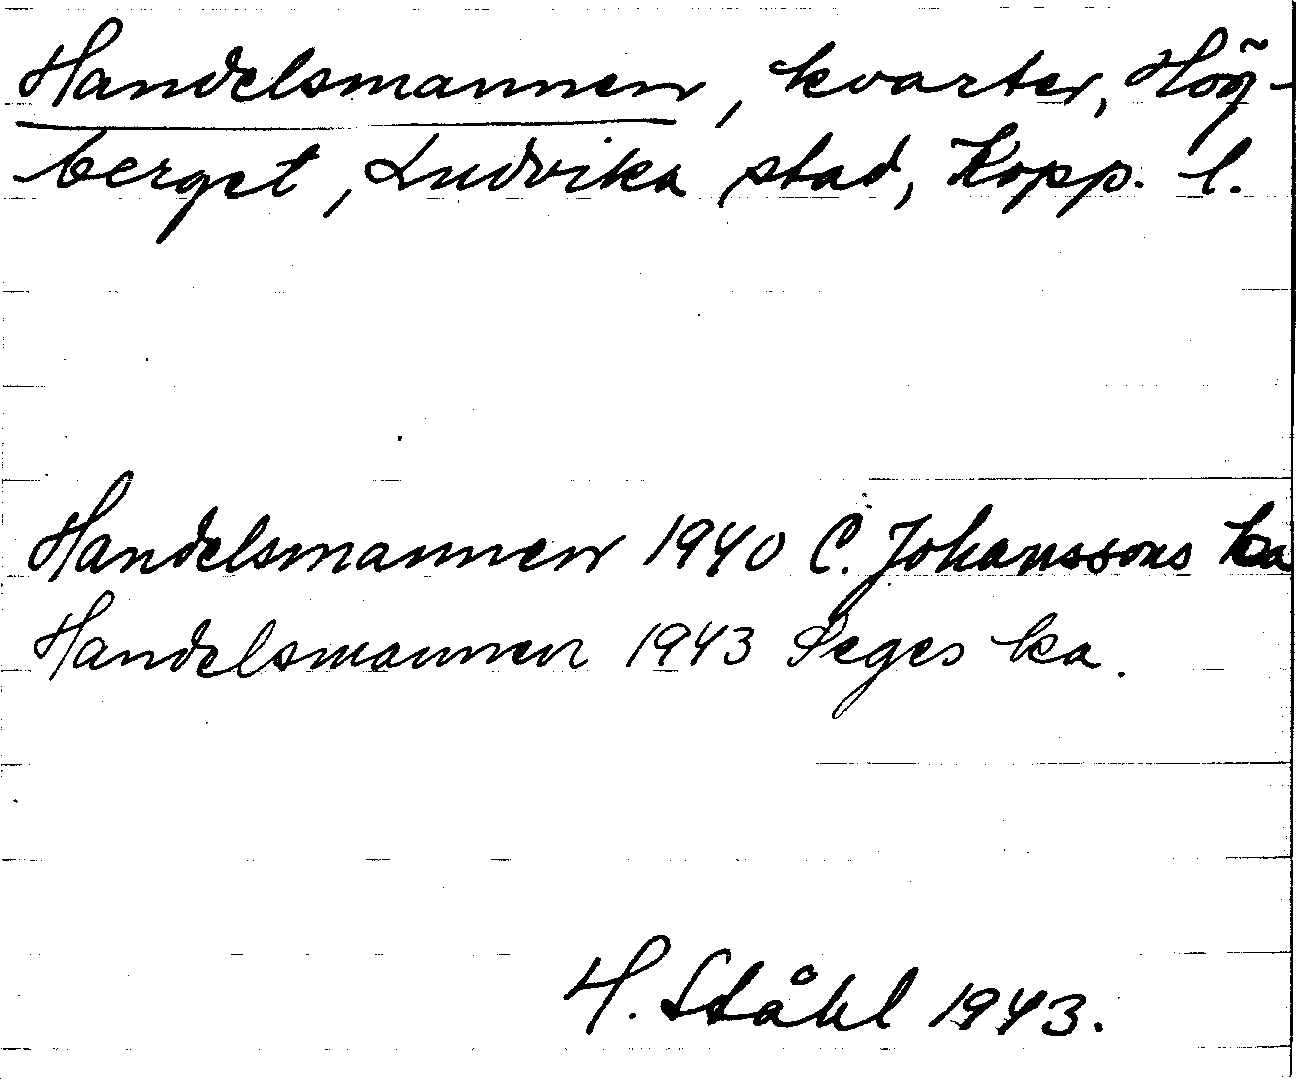 Handelsmannen, kvarter, Hög-
berget, Ludvika stad, Kopp. l.
Handelsmannen 1940 C. Johanssons ka
Handelsmannen 1943 Seges ka.
H. Ståhl 1943.